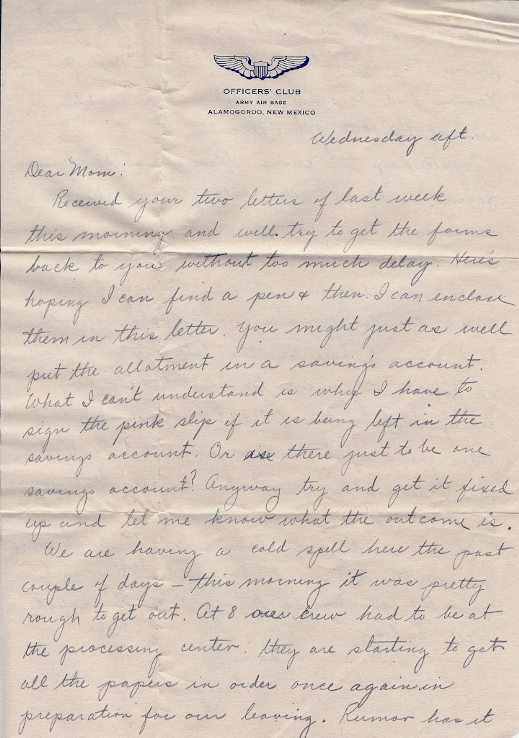 OFFICERS' CLUB
ARMY AIR BASE
ALAMOGORDO, NEW MEXICO
Wednesday aft.
Dear Mom:
Received your two letters of last week
this morning and will try to get the forms
back to you without too much delay. Here's
hoping I can find a pen & then I can enclose
them in this letter. You might just as well
put the allotment in a saving's account.
What I can't understand is why I have to
sign the pink slip if it is being left in the
savings account. Or is there just to be one
savings account? Anyway try and get it fixed
up and let me know what the outcome is.
We are having a cold spell here the past
couple of days - this morning it was pretty
rough to get out. At 8 our crew had to be at
the processing center. They are starting to get
all the papers in order once again in
preparation for our leaving. Rumor has it